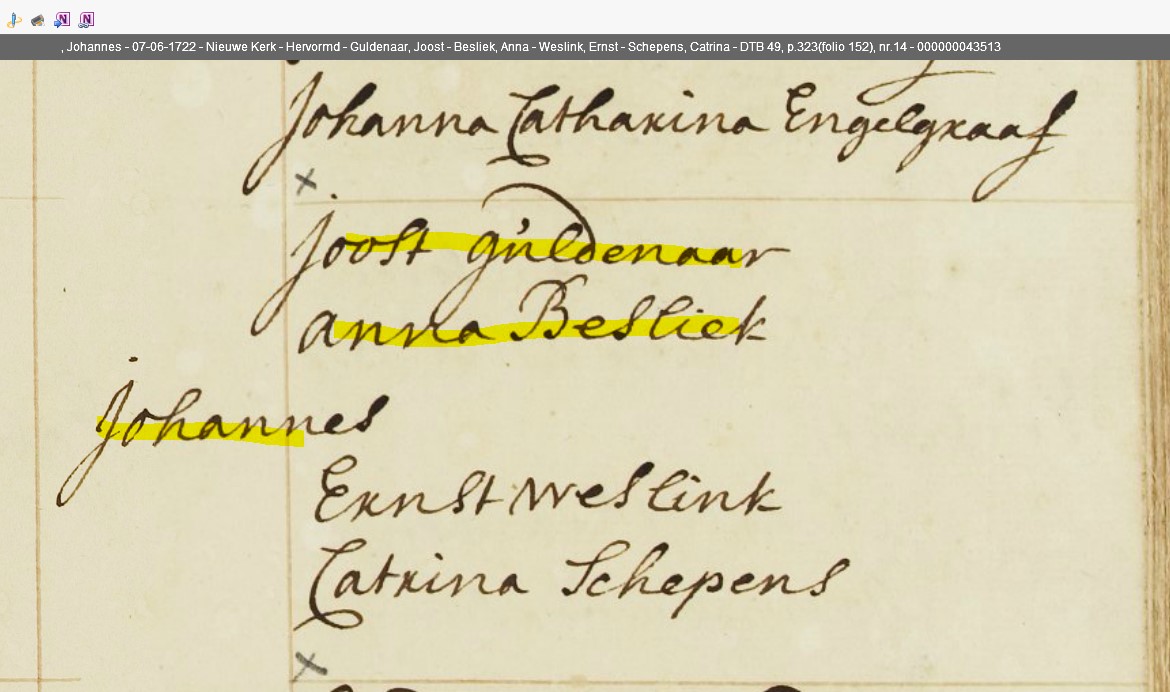 , Johannes - 07-06-1722 - Nieuwe Kerk - Hervormd - Guldenaar, Joost - Besliek, Anna - Weslink, Ernst - Schepens, Catrina - DTB 49, p.323(folio 152), nr.14 - 000000043513
Johanna Catharina Engelgraaf
Joost Guldenaar
Anna Besliek
Johannes
Ernst Weslink
Catrina Schepens